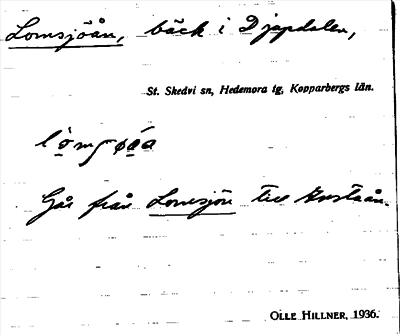 Lomsjöån, bäck i Djupdalen,
St. Skedvi sn, Hedemora tg, Kopparbergs län.
Går från Lomsjön till Gustaån.
OLLE HILLNER, 1936.